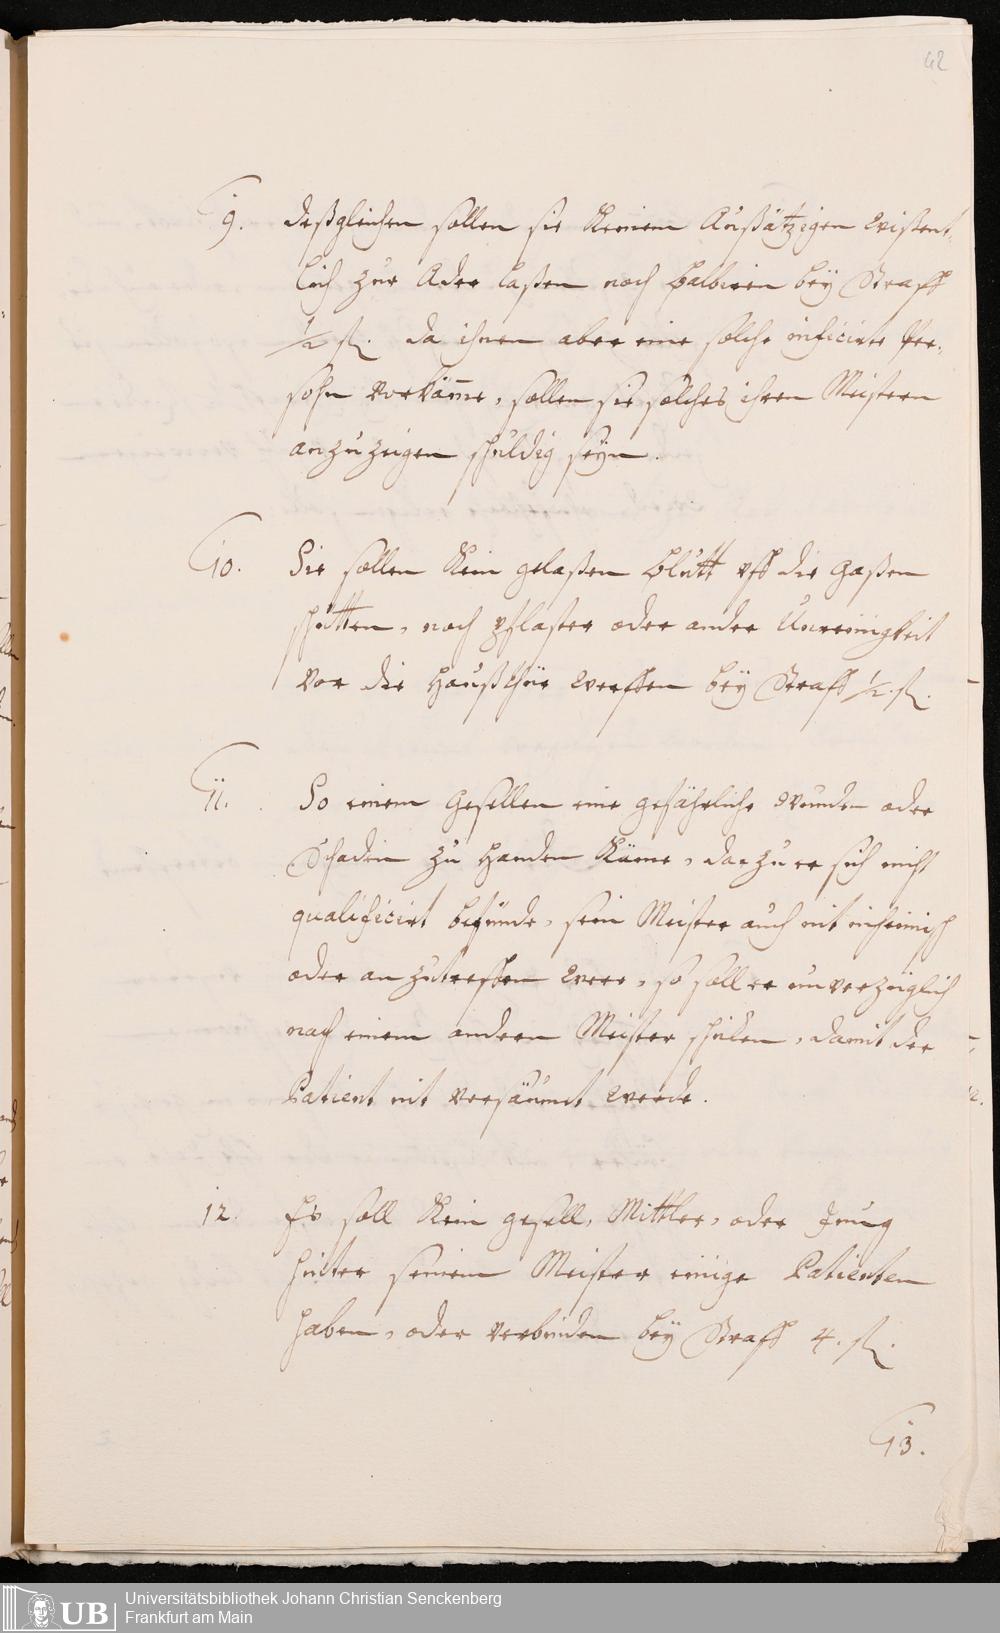 42
9. deßgleichen sollen sie keinem Außsätzigen wißent-
lich zur Ader laßen noch balbiren bey Straff
1/2 fl. da ihnen aber eine solche inficirte Per-
sohn vorkäme, sollen sie solches ihren Meistern
anzuzeigen schuldig seyn.
10. Sie sollen kein gelaßen blutt uff die gaßen
schütten, noch pflaster oder ander Unreinigkeit
vor die Haußthür werffen bey Straff 1/2. fl.
11. So einem Gesellen eine gefährliche wunden oder
Schaden zu Handen käme, darzu er sich nicht
qualificirt befünde, sein Meister auch nit inheimisch
oder anzutreffen were, so soll er unverzüglich
nach einem andern Meister schicken, damit der
Patient nit versäumt werde.
12. Es soll kein gesell, Mittler, oder Jung
hinter seinem Meister einige Patienten
haben, oder verbinden bey Straff 4. fl.
13.
UB
Universitätsbibliothek Johann Christian Senckenberg
Frankfurt am Main